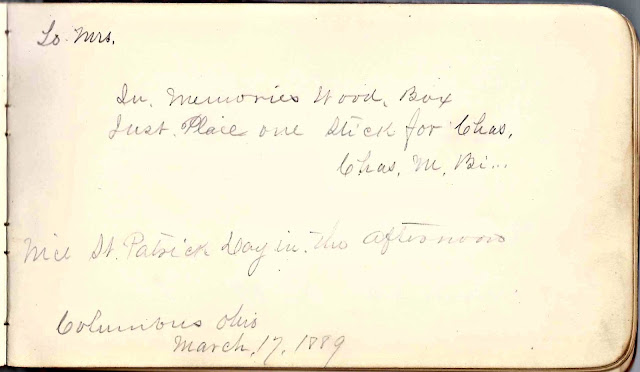 To Mrs.
In. Memories Wood. Box
Just. Place one Stick for Chas,
Chas. M. Bi...
Nice St. Patrick Day in. the afternoon
Columbus Ohio
March, 17, 1889